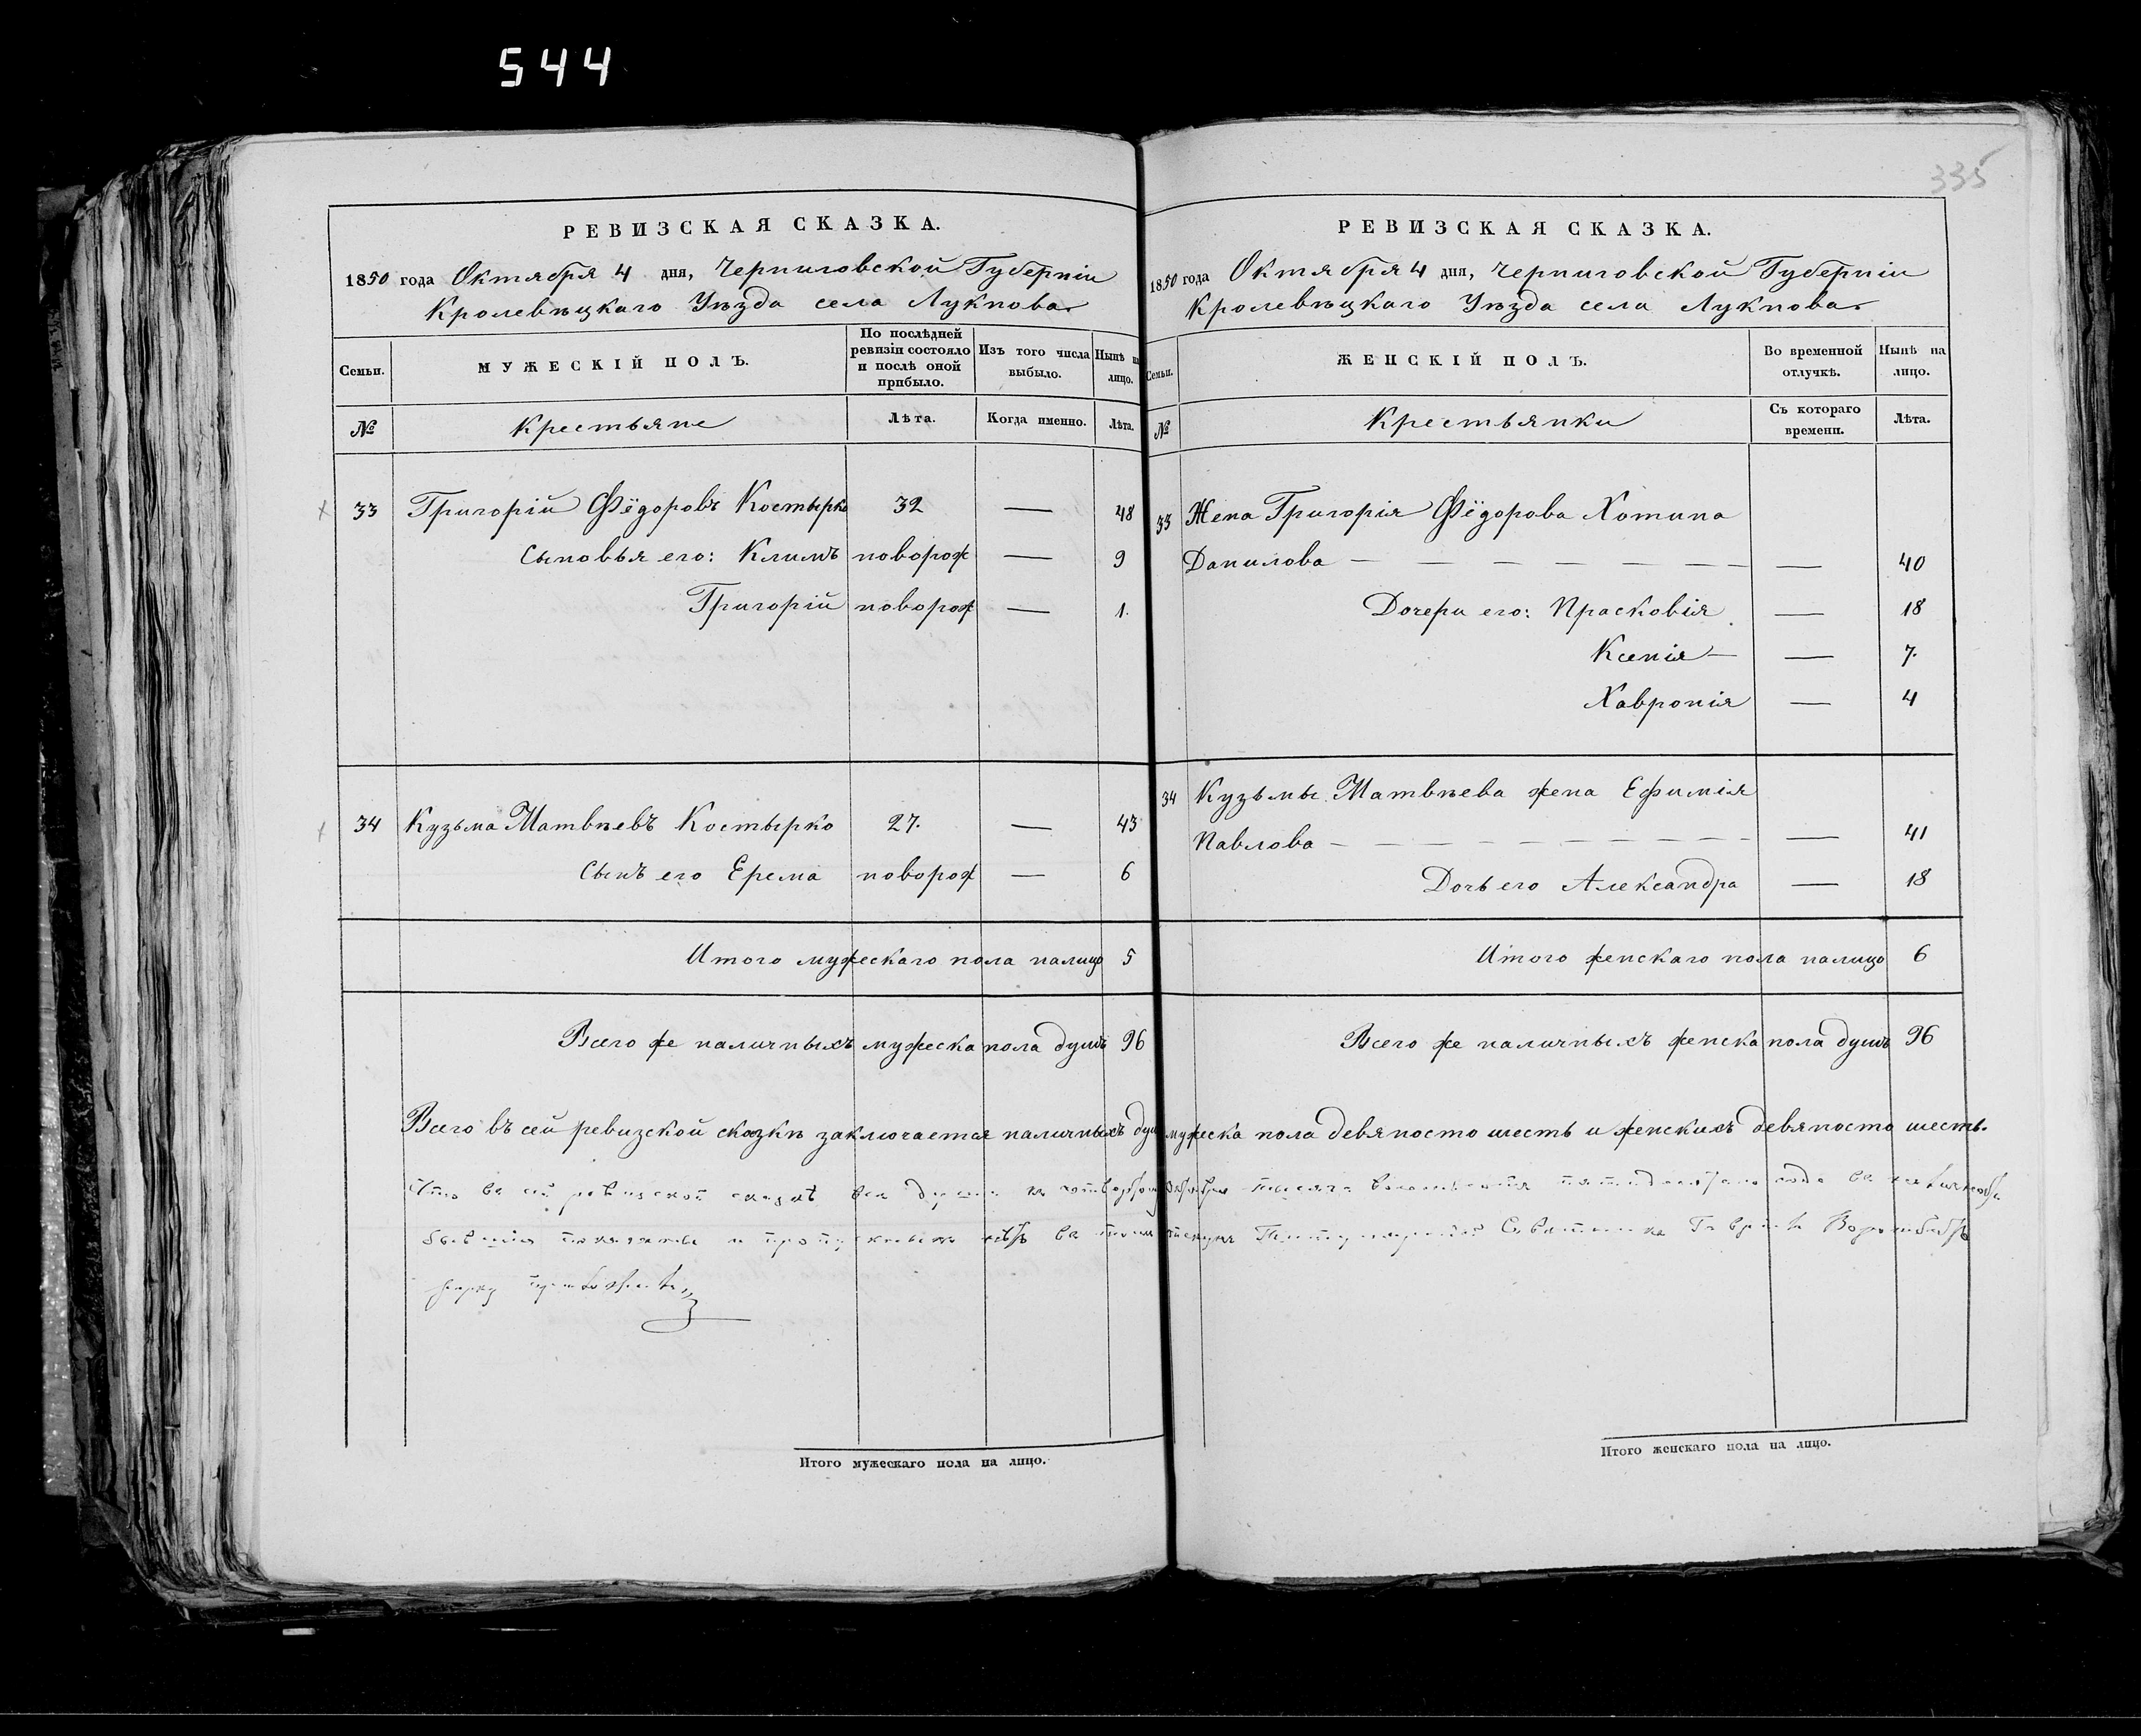 544
335
РЕВИЗСКАЯ СКАЗКА.
1850 года Октября 4 дня, Черниговской Губерніи
Кролевѣцкаго Уѣзда села Лукнова
Семьи.
МУЖЕСКІЙ ПОЛЪ.
По послѣдней
ревизіи состояло
и послѣ оной
прибыло.
Изъ того числа
выбыло.
Нынѣ на
лицо.
№
Крестьяне
Лѣта.
Когда именно.
Лѣта.
33 Григорій Фёдоровъ Костырко 32 — 48
Сыновья его: Климъ новорож — 9
Григорій новорож — 1.
34 Кузьма Матвѣевъ Костырко 27. — 43
Сынъ его Ерема новорож — 6
Итого мужескаго пола налицо 5
Всего же наличныхъ мужеска пола душъ 96
РЕВИЗСКАЯ СКАЗКА.
1850 года Октября 4 дня, Черниговской Губерніи
Кролевѣцкаго Уѣзда села Лукнова
Семьи.
ЖЕНСКІЙ ПОЛЪ.
Во временной
отлучкѣ.
Нынѣ на
лицо.
№
Крестьянки
Съ котораго
времени.
Лѣта.
33 Жена Григорія Фёдорова Хотина
Данилова — — 40
Дочери его: Прасковія — 18
Ксенія — — 7.
Хавронія — 4
34 Кузьмы Матвѣева жена Ефимія
Павлова — — 41
Дочь его Александра — 18
Итого женскаго пола налицо 6
Всего же наличныхъ женска пола душъ 96
Всего въ сей ревизской сказкѣ заключается наличныхъ душ мужеска пола девяносто шесть и женскихъ девяносто шесть.
Что въ сей ревизской сказкѣ все души
Итого мужескаго пола на лицо.
Итого женскаго пола на лицо.